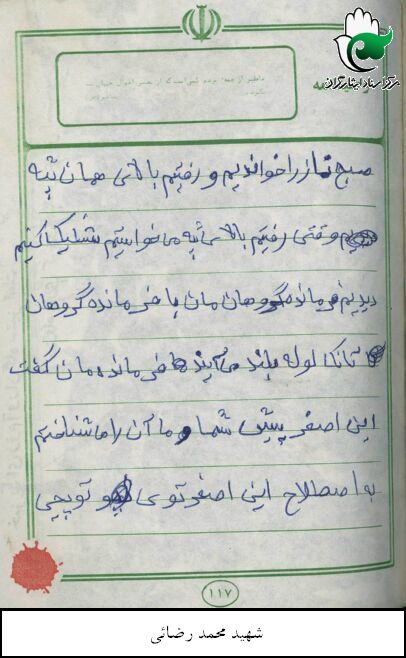 مرکز اسناد ایثارگران
صبح نماز را خواندیم و رفتیم بالای همان تپه
وقتی رفتیم بالای تپه می خواستیم شلیک کنیم
دیدیم فرمانده گروهان مان با فرمانده گروهان
تانک لوله بلند می آیند فرمانده مان گفت
این اصغر پیش شما و ما آن را می شناختیم
به اصطلاح این اصغر توی توپچی
۱۱۷
شهید محمد رضائی